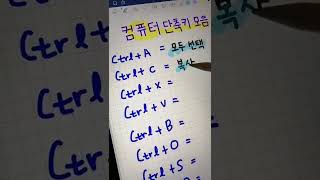 컴퓨터 단축키 모음
Ctrl + A = 모두 선택
Ctrl + C = 복사
Ctrl + X =
Ctrl + V =
Ctrl + B =
Ctrl + O =
Ctrl + S =